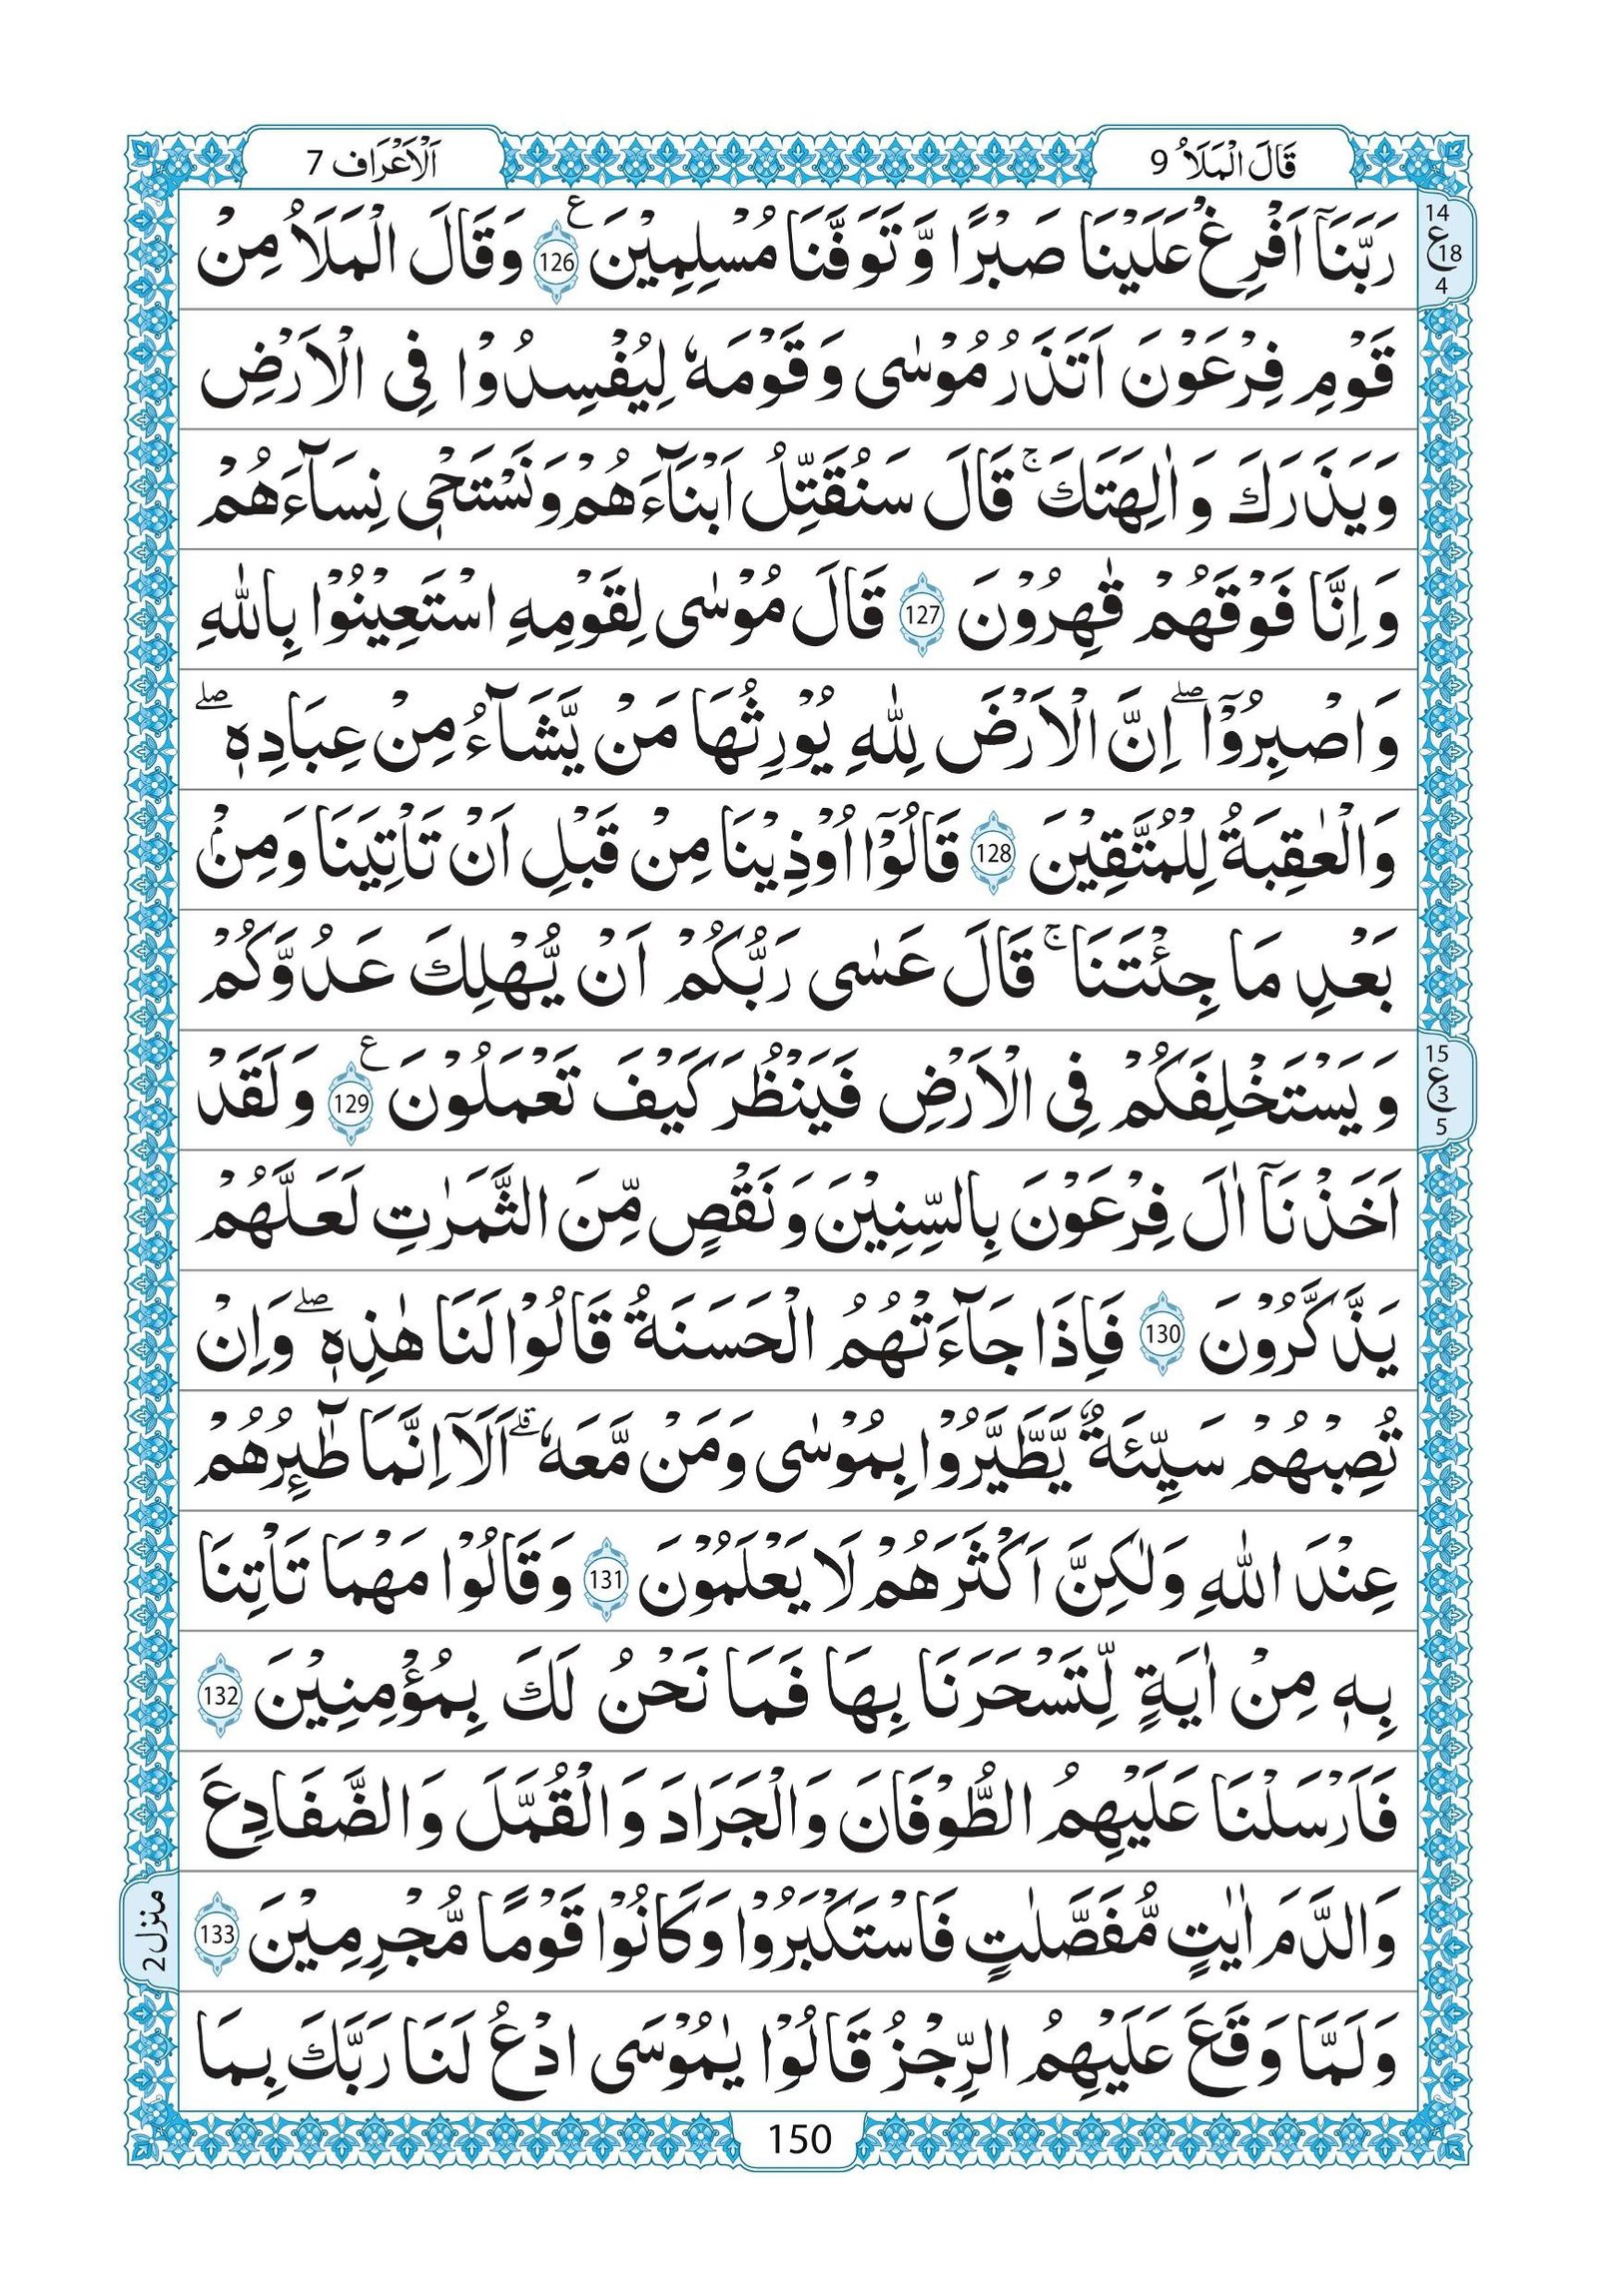 قَالَ الْمَلَاُ 9
اَلْاَعْرَاف 7
رَبَّنَاۤ اَفْرِغْ عَلَیْنَا صَبْرًا وَّ تَوَفَّنَا مُسْلِمِیْنَ ۧ 126 وَقَالَ الْمَلَاُ مِنْ
14
ع 18
4
قَوْمِ فِرْعَوْنَ اَتَذَرُ مُوْسٰی وَ قَوْمَهٗ لِیُفْسِدُوْا فِی الْاَرْضِ
وَیَذَرَكَ وَ اٰلِهَتَكَ ؕۚ قَالَ سَنُقَتِّلُ اَبْنَآءَهُمْ وَ نَسْتَحْیٖ نِسَآءَهُمْ
وَ اِنَّا فَوْقَهُمْ قٰهِرُوْنَ 127 قَالَ مُوْسٰی لِقَوْمِهِ اسْتَعِیْنُوْا بِاللّٰهِ
وَ اصْبِرُوْا ۖ اِنَّ الْاَرْضَ لِلّٰهِ یُوْرِثُهَا مَنْ یَّشَآءُ مِنْ عِبَادِهٖ ۖ
وَالْعٰقِبَةُ لِلْمُتَّقِیْنَ 128 قَالُوْۤا اُوْذِیْنَا مِنْ قَبْلِ اَنْ تَاْتِیَنَا وَ مِنْۢ
بَعْدِ مَا جِئْتَنَا ۚ قَالَ عَسٰی رَبُّكُمْ اَنْ یُّهْلِكَ عَدُوَّكُمْ
وَ یَسْتَخْلِفَكُمْ فِی الْاَرْضِ فَیَنْظُرَ كَیْفَ تَعْمَلُوْنَ ۧ 129 وَ لَقَدْ
15
ع 3
5
اَخَذْنَاۤ اٰلَ فِرْعَوْنَ بِالسِّنِیْنَ وَ نَقْصٍ مِّنَ الثَّمَرٰتِ لَعَلَّهُمْ
یَذَّكَّرُوْنَ 130 فَاِذَا جَآءَتْهُمُ الْحَسَنَةُ قَالُوْا لَنَا هٰذِهٖ ۖ وَاِنْ
تُصِبْهُمْ سَیِّئَةٌ یَّطَّیَّرُوْا بِمُوْسٰی وَ مَنْ مَّعَهٗ ۗ اَلَاۤ اِنَّمَا طٰٓىِٕرُهُمْ
عِنْدَ اللّٰهِ وَلٰكِنَّ اَكْثَرَهُمْ لَا یَعْلَمُوْنَ 131 وَقَالُوْا مَهْمَا تَاْتِنَا
بِهٖ مِنْ اٰیَةٍ لِّتَسْحَرَنَا بِهَا فَمَا نَحْنُ لَكَ بِمُؤْمِنِیْنَ 132
فَاَرْسَلْنَا عَلَیْهِمُ الطُّوْفَانَ وَالْجَرَادَ وَ الْقُمَّلَ وَ الضَّفَادِعَ
وَالدَّمَ اٰیٰتٍ مُّفَصَّلٰتٍ فَاسْتَكْبَرُوْا وَ كَانُوْا قَوْمًا مُّجْرِمِیْنَ 133
منزل 2
وَلَمَّا وَقَعَ عَلَیْهِمُ الرِّجْزُ قَالُوْا یٰمُوْسَی ادْعُ لَنَا رَبَّكَ بِمَا
150